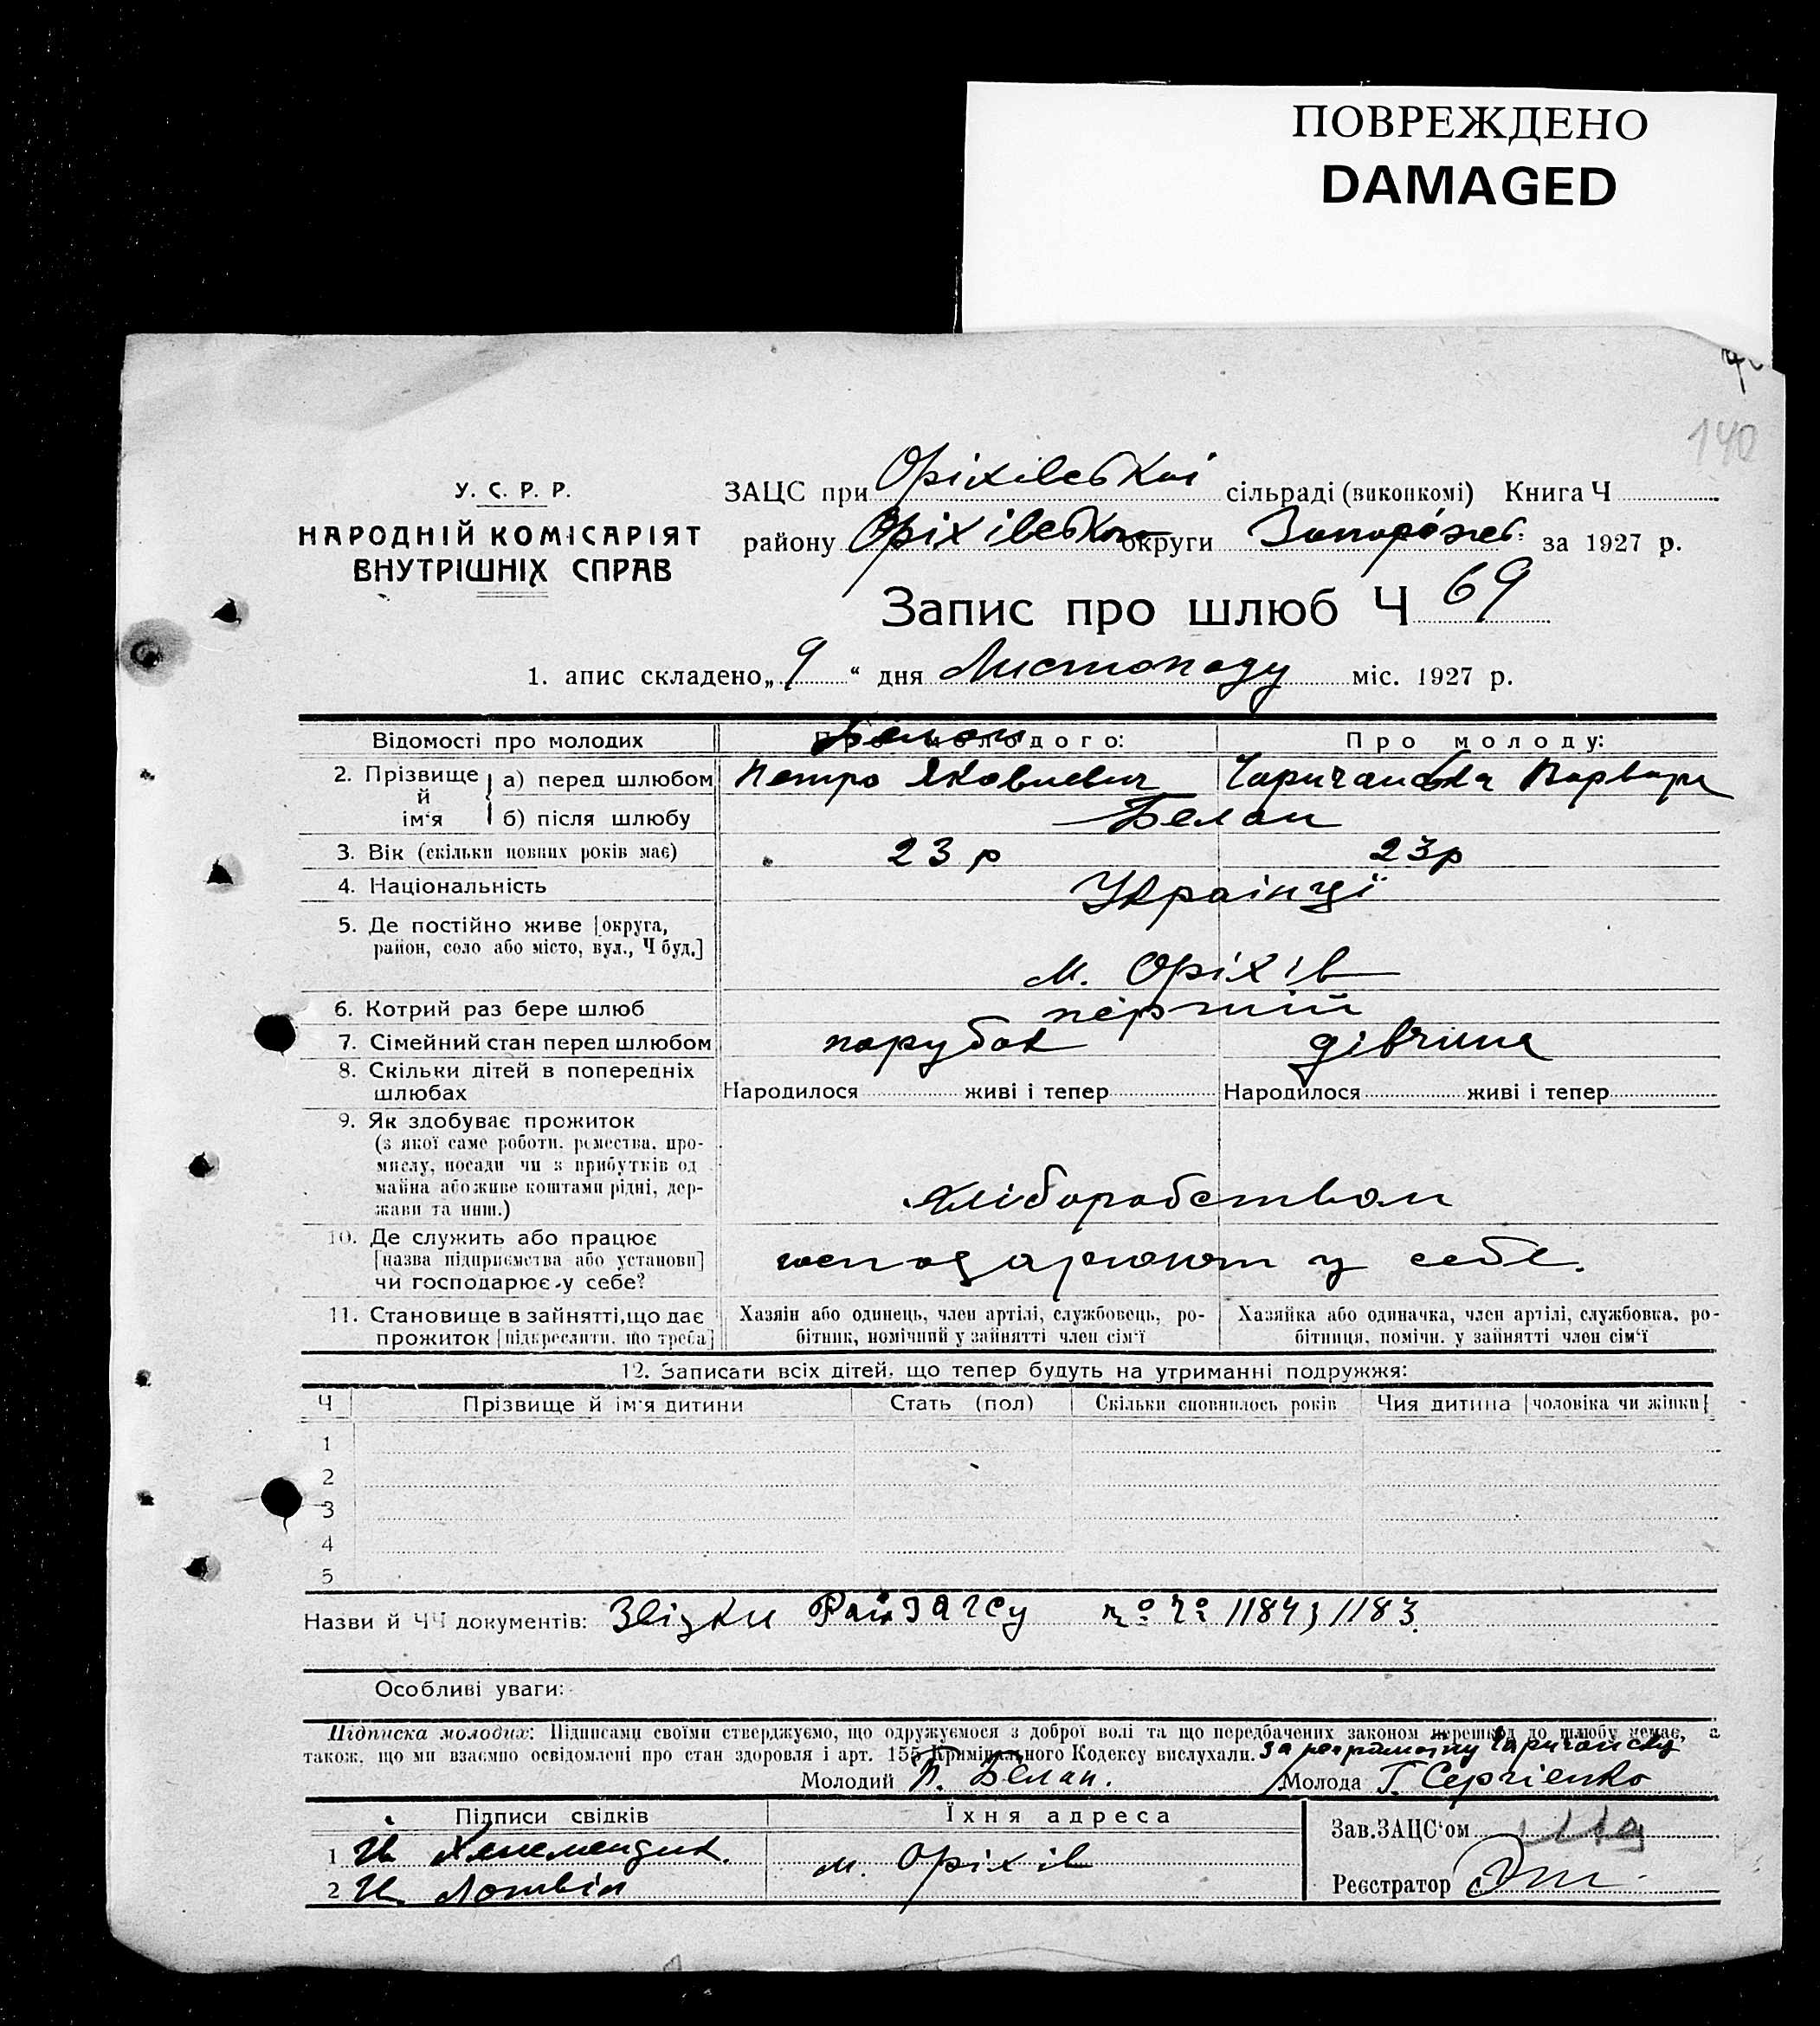 ПОВРЕЖДЕНО
DAMAGED
140
У. С. Р. Р.
НАРОДНІЙ КОМІСАРІЯТ
ВНУТРІШНІХ СПРАВ
ЗАЦС при Оріхівській сільраді (виконкомі) Книга Ч
району Оріхівського округи Запоріжс. за 1927 р.
Запис про шлюб Ч 69
1. апис складено „ 9 “ дня Листопаду міс. 1927 р.
Відомості про молодих Про молодого: Про молоду:
Белан
2. Прізвище й ім'я а) перед шлюбом Петро Яковлевич Чаричанська Варвара
б) після шлюбу Белан
3. Вік (скільки повних років має) 23 р 23р
4. Національність Українці
5. Де постійно живе [округа,
район, село або місто, вул., Ч буд.] м. Оріхів
6. Котрий раз бере шлюб перший
7. Сімейний стан перед шлюбом парубок дівчина
8. Скільки дітей в попередніх
шлюбах Народилося живі і тепер Народилося живі і тепер
9. Як здобуває прожиток
(з якої саме роботи, ремества, про-
мислу, посади чи з прибутків од
майна або живе коштами рідні, дер-
жави та инш.) хліборобством
10. Де служить або працює
[назва підприємства або установи]
чи господарює у себе? господарюют у себе.
11. Становище в зайнятті, що дає
прожиток [підкреслити, що треба]
Хазяін або одинець, член артілі, службовець, ро-
бітник, помічний у зайнятті член сім'ї
Хазяйка або одиначка, член артілі, службовка, ро-
бітниця, помічн. у зайнятті член сім'ї
12. Записати всіх дітей, що тепер будуть на утриманні подружжя:
Ч Прізвище й ім'я дитини Стать (пол) Скільки сповнилось років Чия дитина [чоловіка чи жінки]
1
2
3
4
5
Назви й ЧЧ документів: Звізки Райзагсу 1184, 1183
Особливі уваги:
Підписка молодих: Підписами своїми стверджуємо, що одружуємося з доброї волі та що передбачених законом перешкод до шлюбу немає, а
також, що ми взаємно освідомлені про стан здоровля і арт. 155 Кримінального Кодексу вислухали. За неграмотну Чаричанську
Молодий П. Белан. Молода Г. Сергієнко
Підписи свідків Їхня адреса Зав.ЗАЦС'ом
1 м. Оріхів
2 Реєстратор